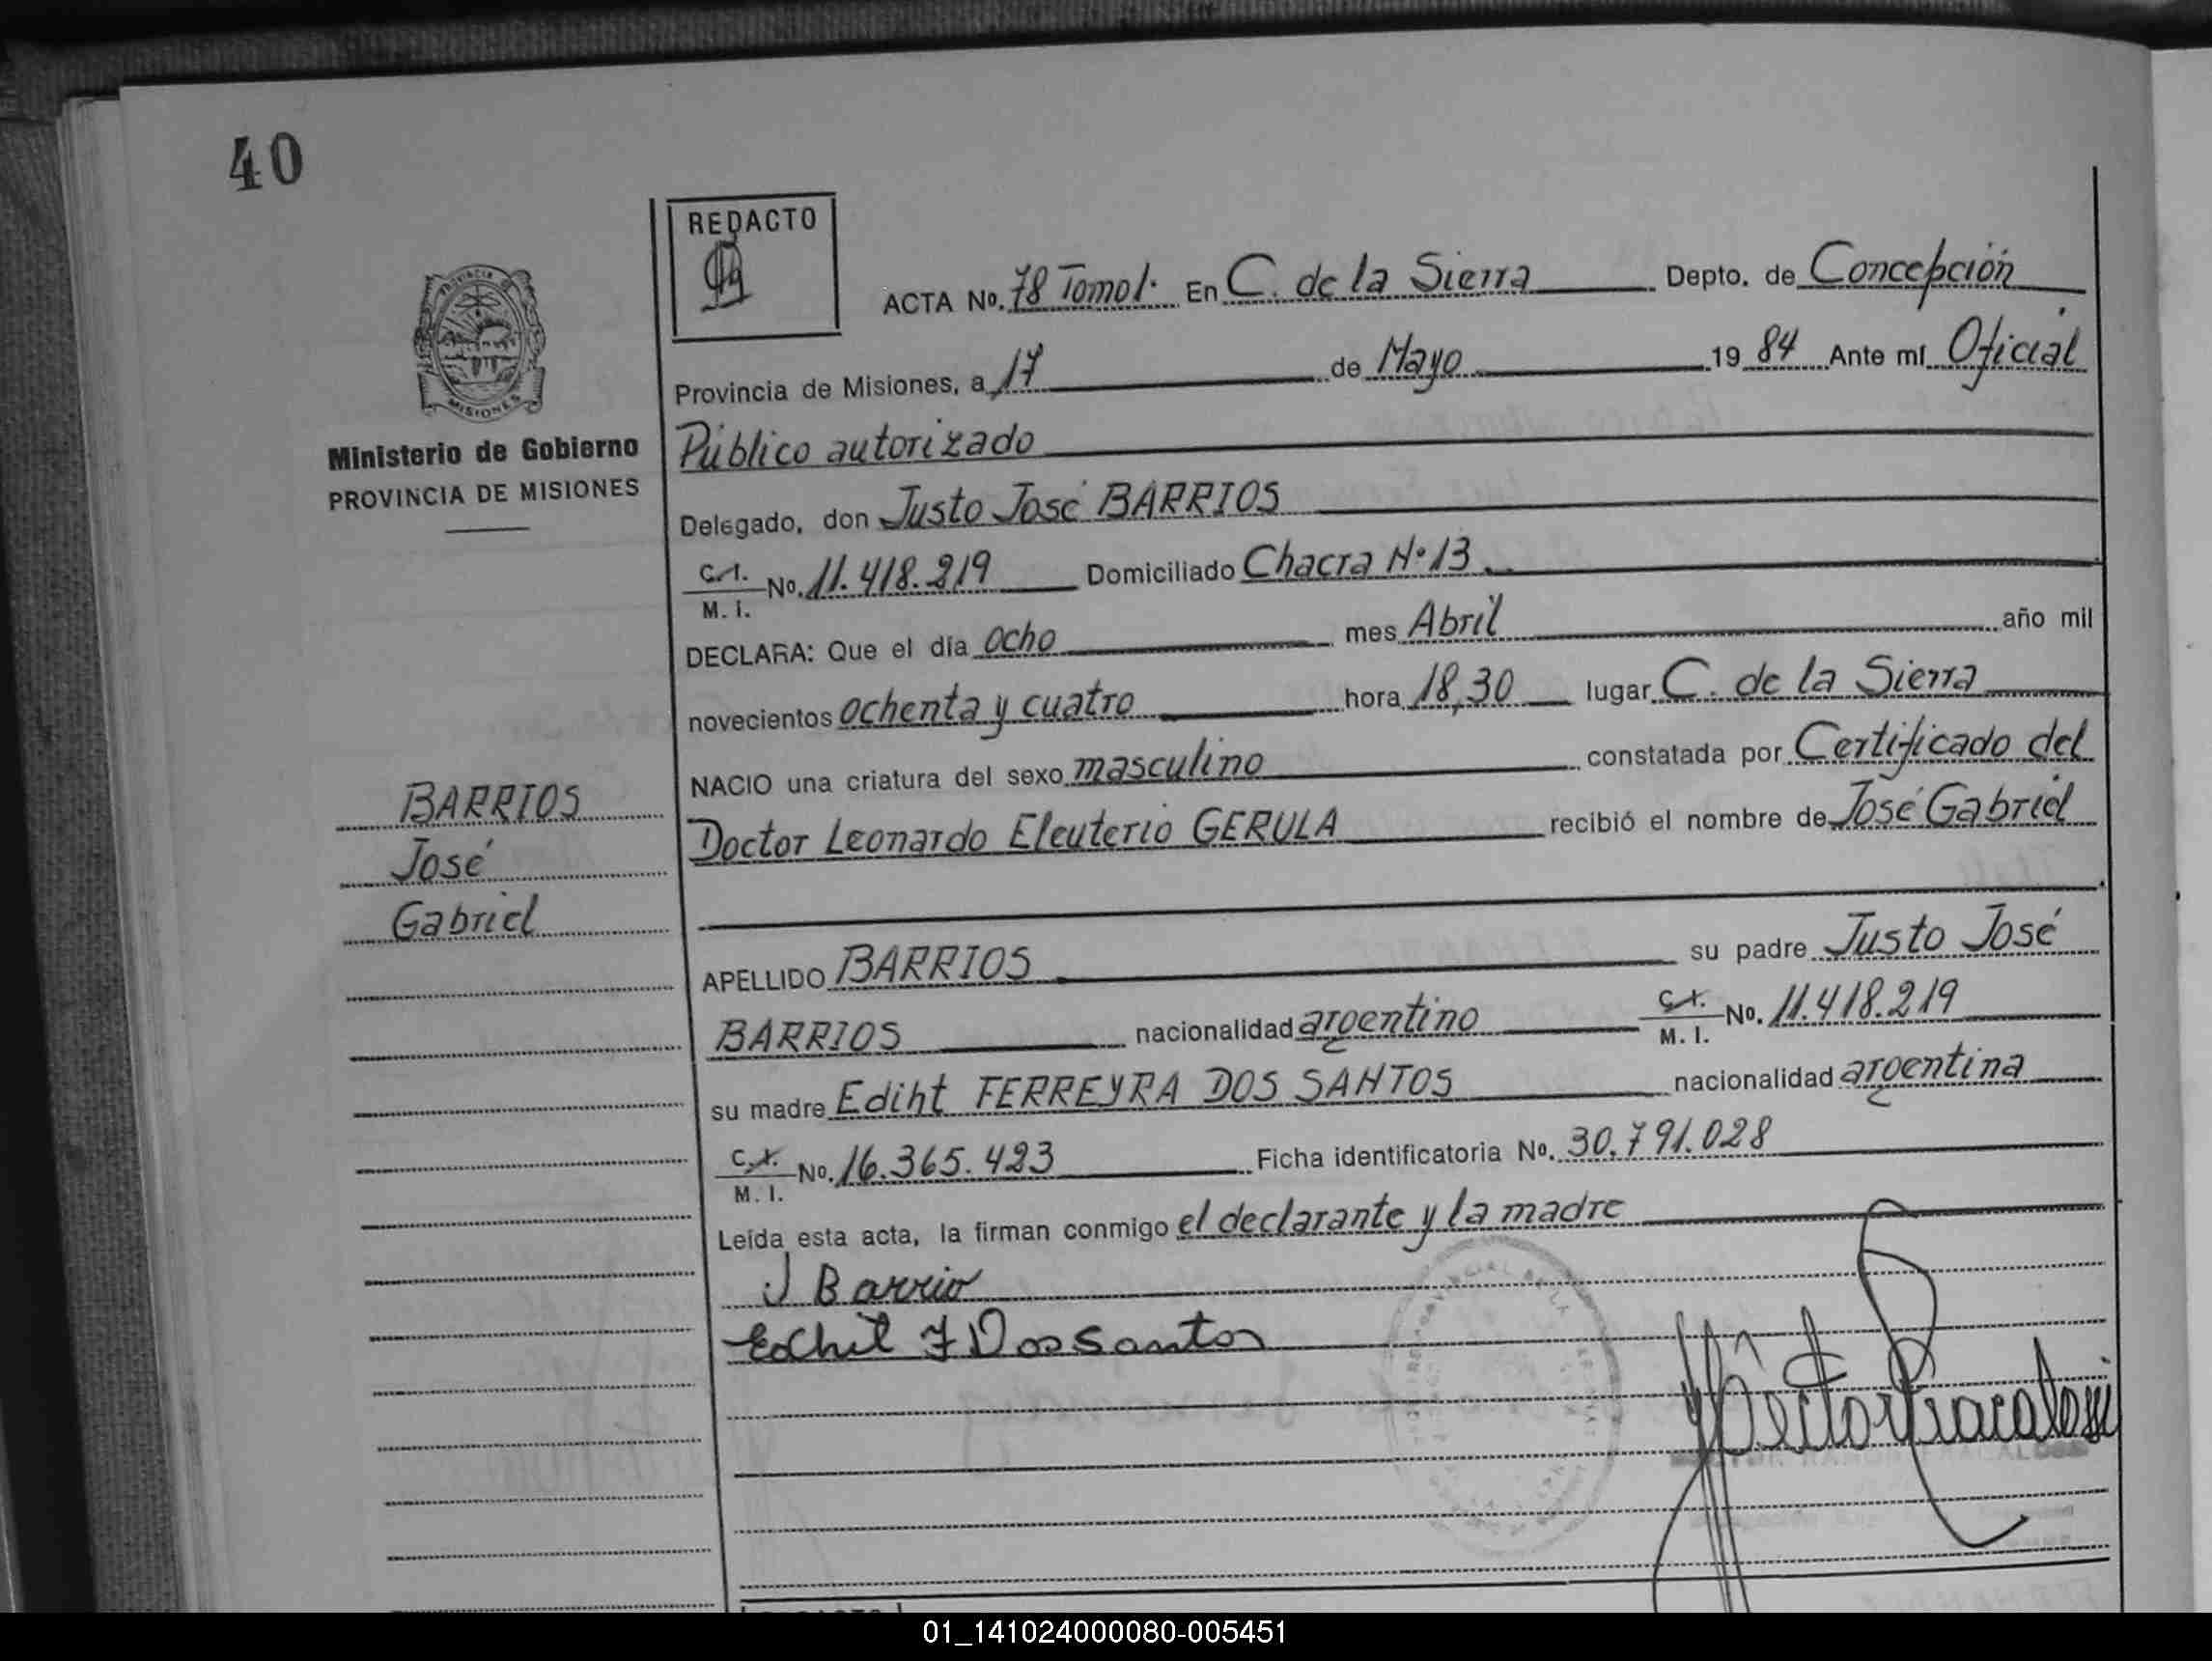 40
REDACTO
ACTA No. 78 Tomo I. En C. de la Sierra Depto. de Concepción
Provincia de Misiones, a 17 de Mayo 19 84 Ante mí Oficial
Ministerio de Gobierno
PROVINCIA DE MISIONES
Público autorizado
Delegado, don Justo José BARRIOS
C.I. M. I. No. 11.418.219 Domiciliado Chacra N° 13
DECLARA: Que el día ocho mes Abril año mil
novecientos ochenta y cuatro hora 18,30 lugar C. de la Sierra
NACIO una criatura del sexo masculino constatada por Certificado del
Doctor Leonardo Eleuterio GERULA recibió el nombre de José Gabriel
BARRIOS
José
Gabriel
APELLIDO BARRIOS su padre Justo José
BARRIOS nacionalidad argentino C.I. M. I. No. 11.418.219
su madre Ediht FERREYRA DOS SANTOS nacionalidad argentina
C.I. M. I. No. 16.365.423 Ficha identificatoria No. 30.791.028
Leída esta acta, la firman conmigo el declarante y la madre
J Barrio
F Dos Santos
01_141024000080-005451